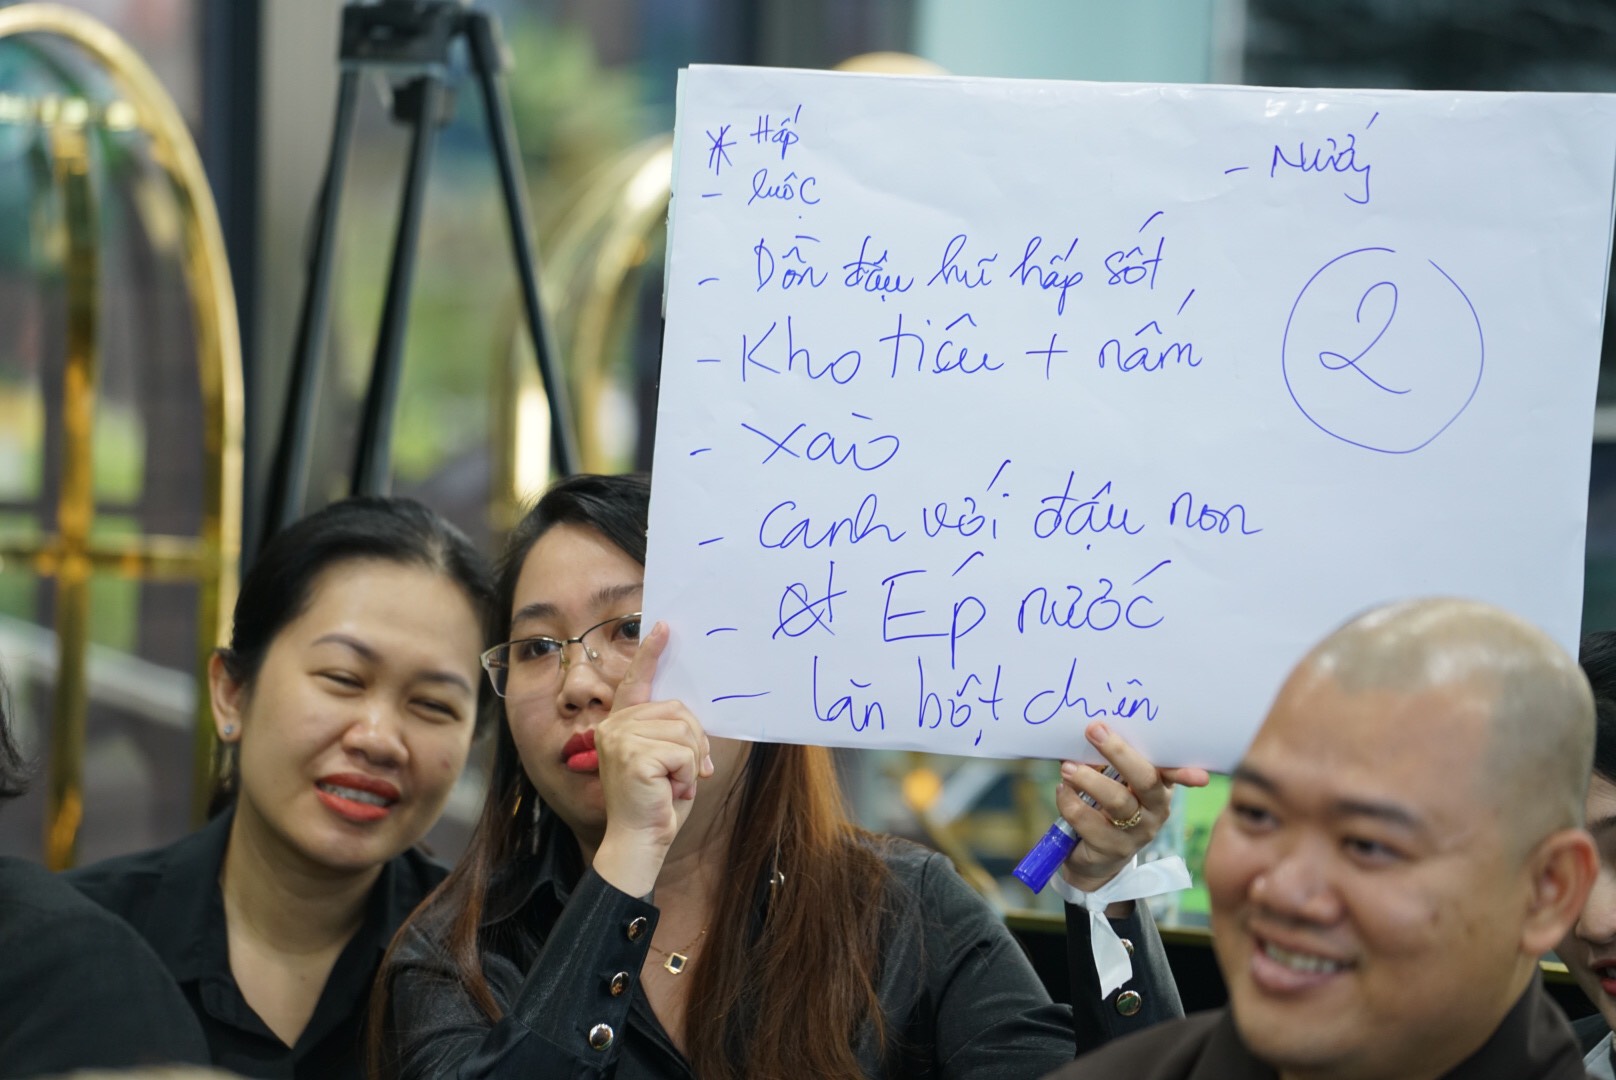 * Hấp
- luộc
- Dồn đậu hũ hấp sốt
- Kho tiêu + nấm
- xào
- canh với đậu non
- Ép nước
- lăn bột chiên
- Nướng
2